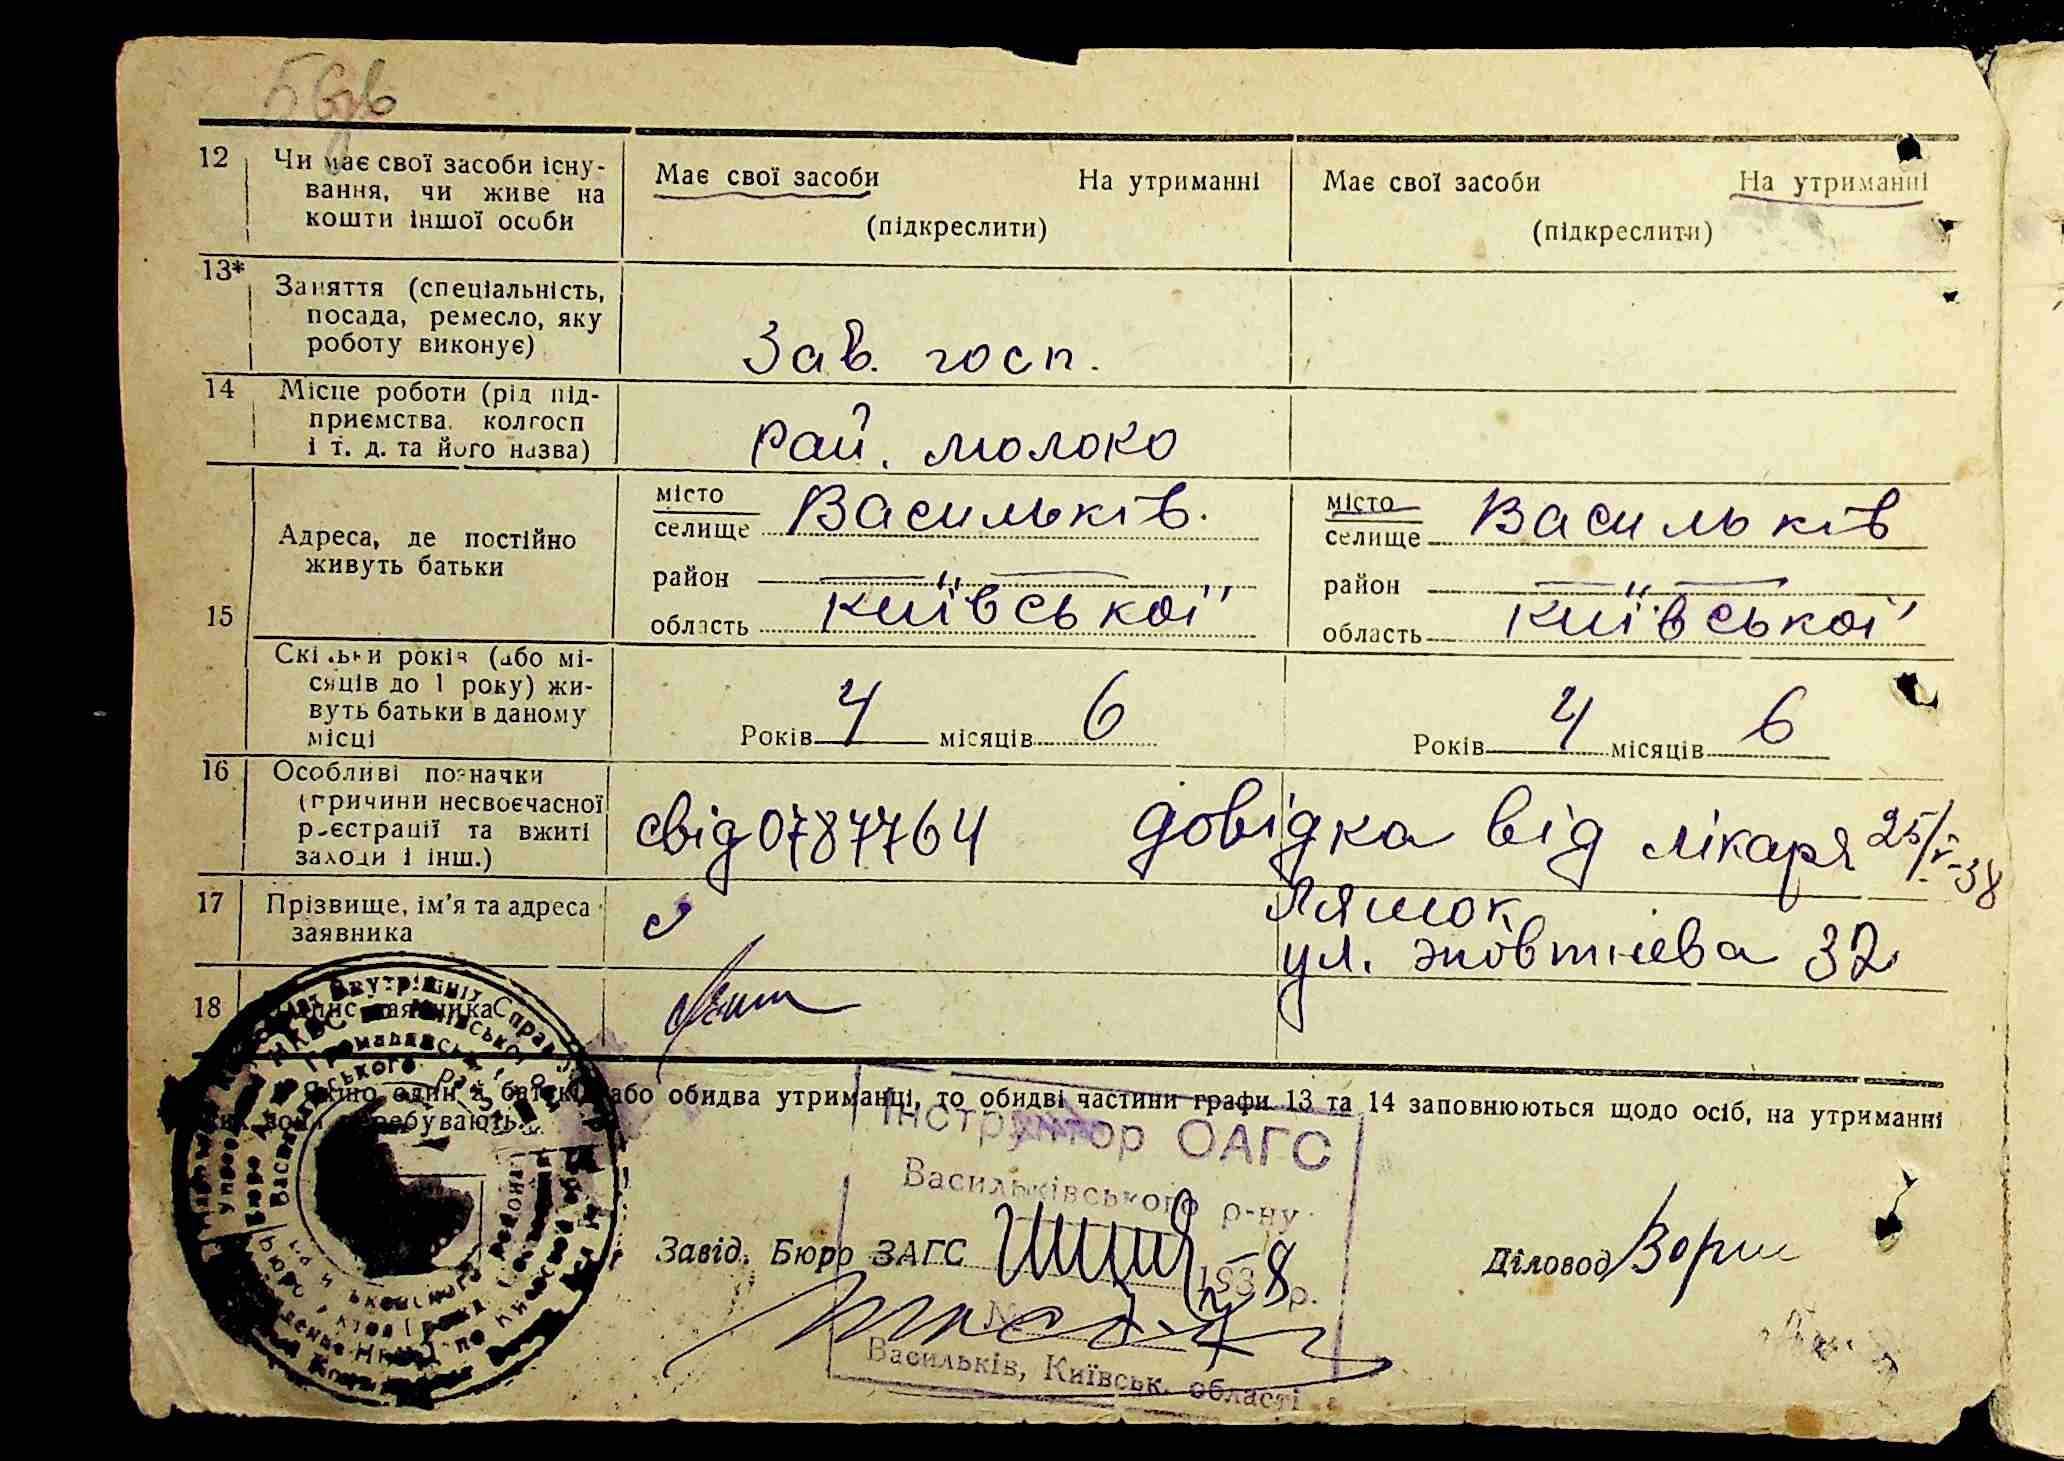 12 Чи має свої засоби існу-
вання, чи живе на
кошти іншої особи
Має свої засоби На утриманні
(підкреслити)
Має свої засоби На утриманні
(підкреслити)
13* Заняття (спеціальність,
посада, ремесло, яку
роботу виконує)
Зав. госп.
14 Місце роботи (рід під-
приємства, колгосп
і т. д. та його назва)
Рай. молоко
15
Адреса, де постійно
живуть батьки
місто
селище Васильків.
район
область Київської
місто
селище Васильків
район
область Київської
Скільки років (або мі-
сяців до 1 року) жи-
вуть батьки в даному
місці
Років 4 місяців 6
Років 4 місяців 6
16 Особливі позначки
(причини несвоєчасної
реєстрації та вжиті
заходи і інш.)
свід 0787764 довідка від лікаря 25/V-38
17 Прізвище, ім'я та адреса
заявника
Ляшок
ул. Жовтнева 32
18 Підпис заявника
Якщо один з батьків або обидва утриманці, то обидві частини графи 13 та 14 заповнюються щодо осіб, на утриманні
яких вони перебувають.
Інструктор ОАГС
Васильківського р-ну
Завід. Бюро ЗАГС
1938 р.
№
Васильків, Київськ. області
Діловод